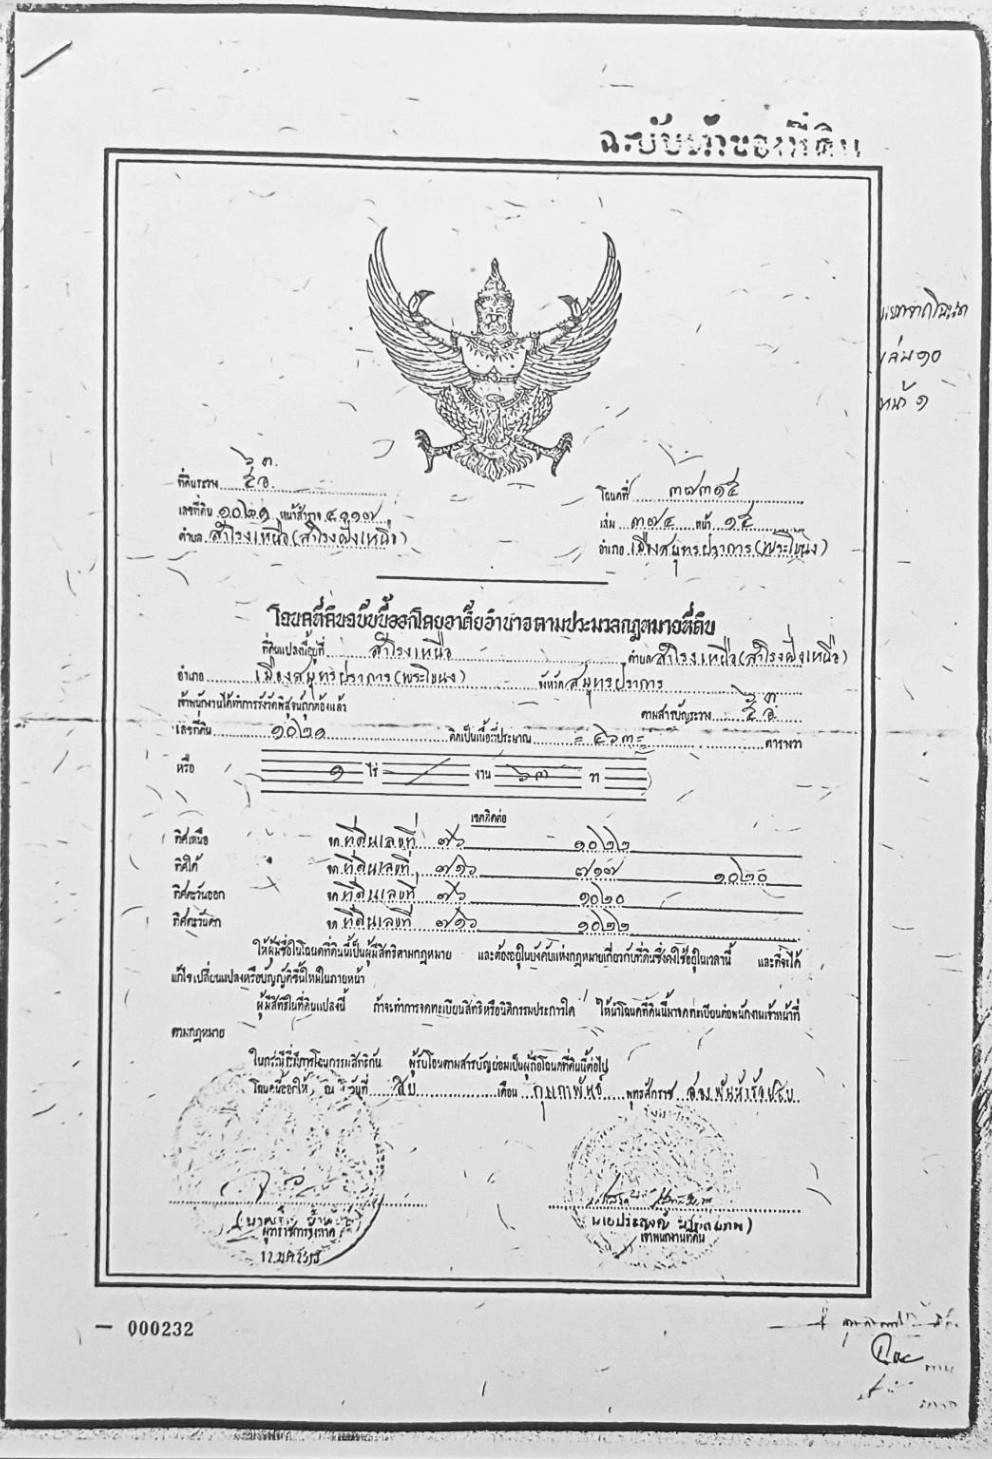 แยกจากโฉนด
เล่ม ๑๐
หน้า ๑
ที่ดินระวาง
โฉนดที่ ๓๗๓๑๕
เลขที่ดิน ๑๐๒๑ หน้าสำรวจ
เล่ม ๓๗๔ หน้า ๑๕
ตำบล สำโรงเหนือ (สำโรงฝั่งเหนือ)
อำเภอ เมืองสมุทรปราการ (พระโขนง)
โฉนดที่ดินฉบับนี้ออกโดยอาศัยอำนาจตามประมวลกฎหมายที่ดิน
ที่ดินแปลงนี้อยู่ที่ สำโรงเหนือ ตำบล สำโรงเหนือ (สำโรงฝั่งเหนือ)
อำเภอ เมืองสมุทรปราการ (พระโขนง) จังหวัด สมุทรปราการ
เจ้าพนักงานได้ทำการรังวัดพิสูจน์ถูกต้องแล้ว ตามสารบัญระวาง
เลขที่ดิน ๑๐๒๑ คิดเป็นเนื้อที่ประมาณ = ๔๖๓ = ตารางวา
หรือ ๑ ไร่ งาน ๖๓ วา
เขตติดต่อ
ทิศเหนือ จด ที่ดินเลขที่ ๑๐๒๒
ทิศใต้ จด ที่ดินเลขที่ ๗๑๖ ๗๑๗ ๑๐๒๐
ทิศตะวันออก จด ที่ดินเลขที่ ๑๐๒๐
ทิศตะวันตก จด ที่ดินเลขที่ ๗๑๖ ๑๐๒๒
ให้ผู้มีชื่อในโฉนดที่ดินนี้เป็นผู้มีสิทธิตามกฎหมาย และต้องอยู่ในบังคับแห่งกฎหมายเกี่ยวกับที่ดินซึ่งคงใช้อยู่ในเวลานี้ และที่จะได้
แก้ไขเปลี่ยนแปลงหรือบัญญัติขึ้นใหม่ในภายหน้า
ผู้มีสิทธิในที่ดินแปลงนี้ ถ้าจะทำการจดทะเบียนสิทธิหรือนิติกรรมประการใด ให้นำโฉนดที่ดินนี้มาจดทะเบียนต่อพนักงานเจ้าหน้าที่
ตามกฎหมาย
ในกรณีที่มีการโอนกรรมสิทธิ์กัน ผู้รับโอนตามสารบัญย่อมเป็นผู้ถือโฉนดที่ดินนี้ต่อไป
โฉนดนี้ออกให้ ณ วันที่ สิบ เดือน กุมภาพันธ์ พุทธศักราช
ผู้ว่าราชการจังหวัด
เจ้าพนักงานที่ดิน
000232